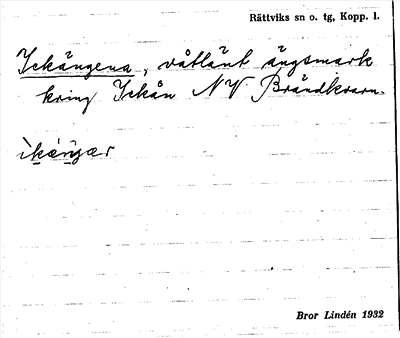 Rättviks sn o. tg, Kopp. l.
Ickängena, våtlänt ängsmark
kring Ickån NV Brändkvarn.
ìkǽŋgær
Bror Lindén 1932